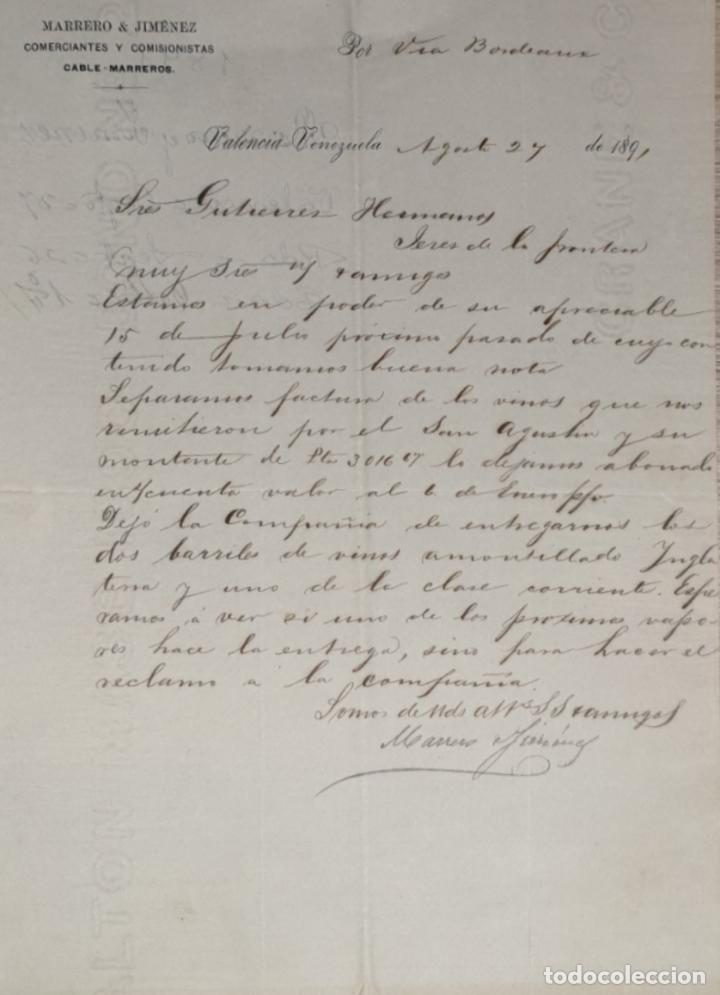 MARRERO & JIMÉNEZ
COMERCIANTES Y COMISIONISTAS
CABLE-MARREROS.
Por Via Bordeaux
Valencia-Venezuela Agosto 27 de 1891
Sres Gutierrez Hermanos
Jeres de la frontera
Muy Sres n/ y amigos
Estamos en poder de su apreciable
15 de Julio próximo pasado de cuyo con
tenido tomamos buena nota
Separamos factura de los vinos que nos
remitieron por el San Agustin y su
montante de Pta 3016 67 lo dejamos abonado
en s/cuenta valor al 6 de Enero ppo.
Dejó la Compañia de entregarnos los
dos barriles de vinos amontillado Ingla
terra y uno de la clase corriente. Espe
ramos á ver si uno de los proximos vapo-
res hace la entrega, sino para hacer el
reclamo á la compañia.
Somos de Uds S S y amigos
Marrero Jiménez
todocoleccion